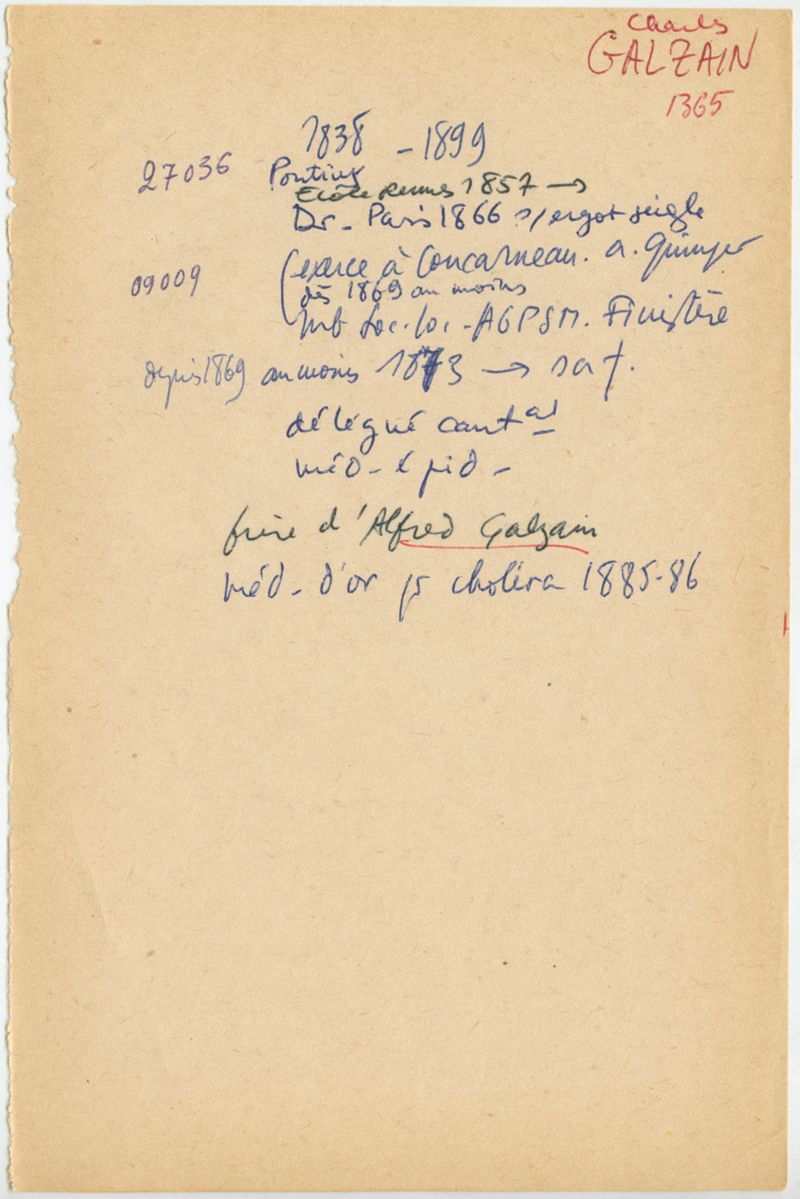 Charles
GALZAIN
1365
1838 - 1899
27036 Pontivy
Ecole Rennes 1857 →
Dr. Paris 1866 s/ergot seigle
09009 (exerce à Concarneau. a. Quimper
dès 1869 au moins
mb Soc. loc. AGPSM. Finistère
depuis 1869 au moins 1873 → sa †.
délégué cantal
méd. épid.
frère d'Alfred Galzain
méd. d'or ps choléra 1885-86